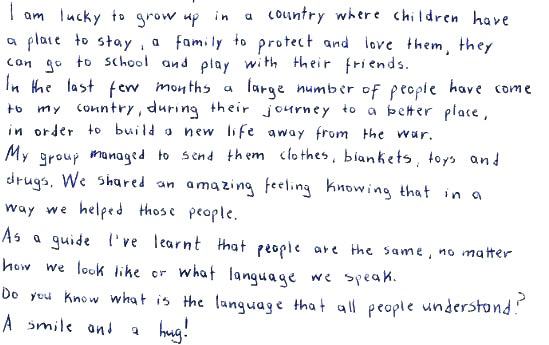 I am lucky to grow up in a country where children have
a place to stay, a family to protect and love them, they
can go to school and play with their friends.
In the last few months a large number of people have come
to my country, during their journey to a better place,
in order to build a new life away from the war.
My group managed to send them clothes, blankets, toys and
drugs. We shared an amazing feeling knowing that in a
way we helped those people.
As a guide I've learnt that people are the same, no matter
how we look like or what language we speak.
Do you know what is the language that all people understand?
A smile and a hug!